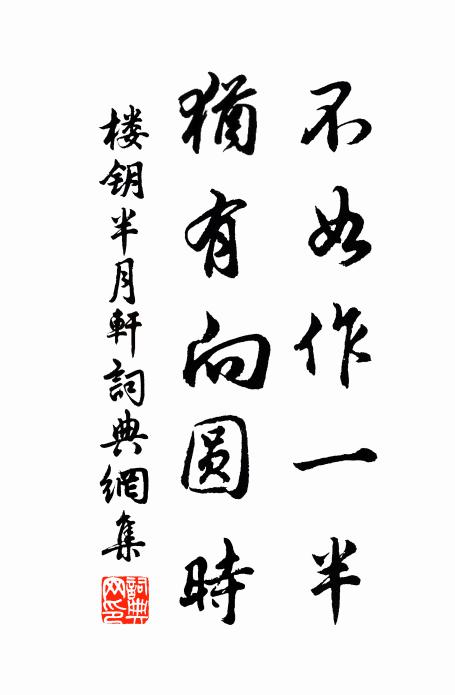 不如作一半
猶有向圆時
楼钥半月軒詞典網集
詞典網印